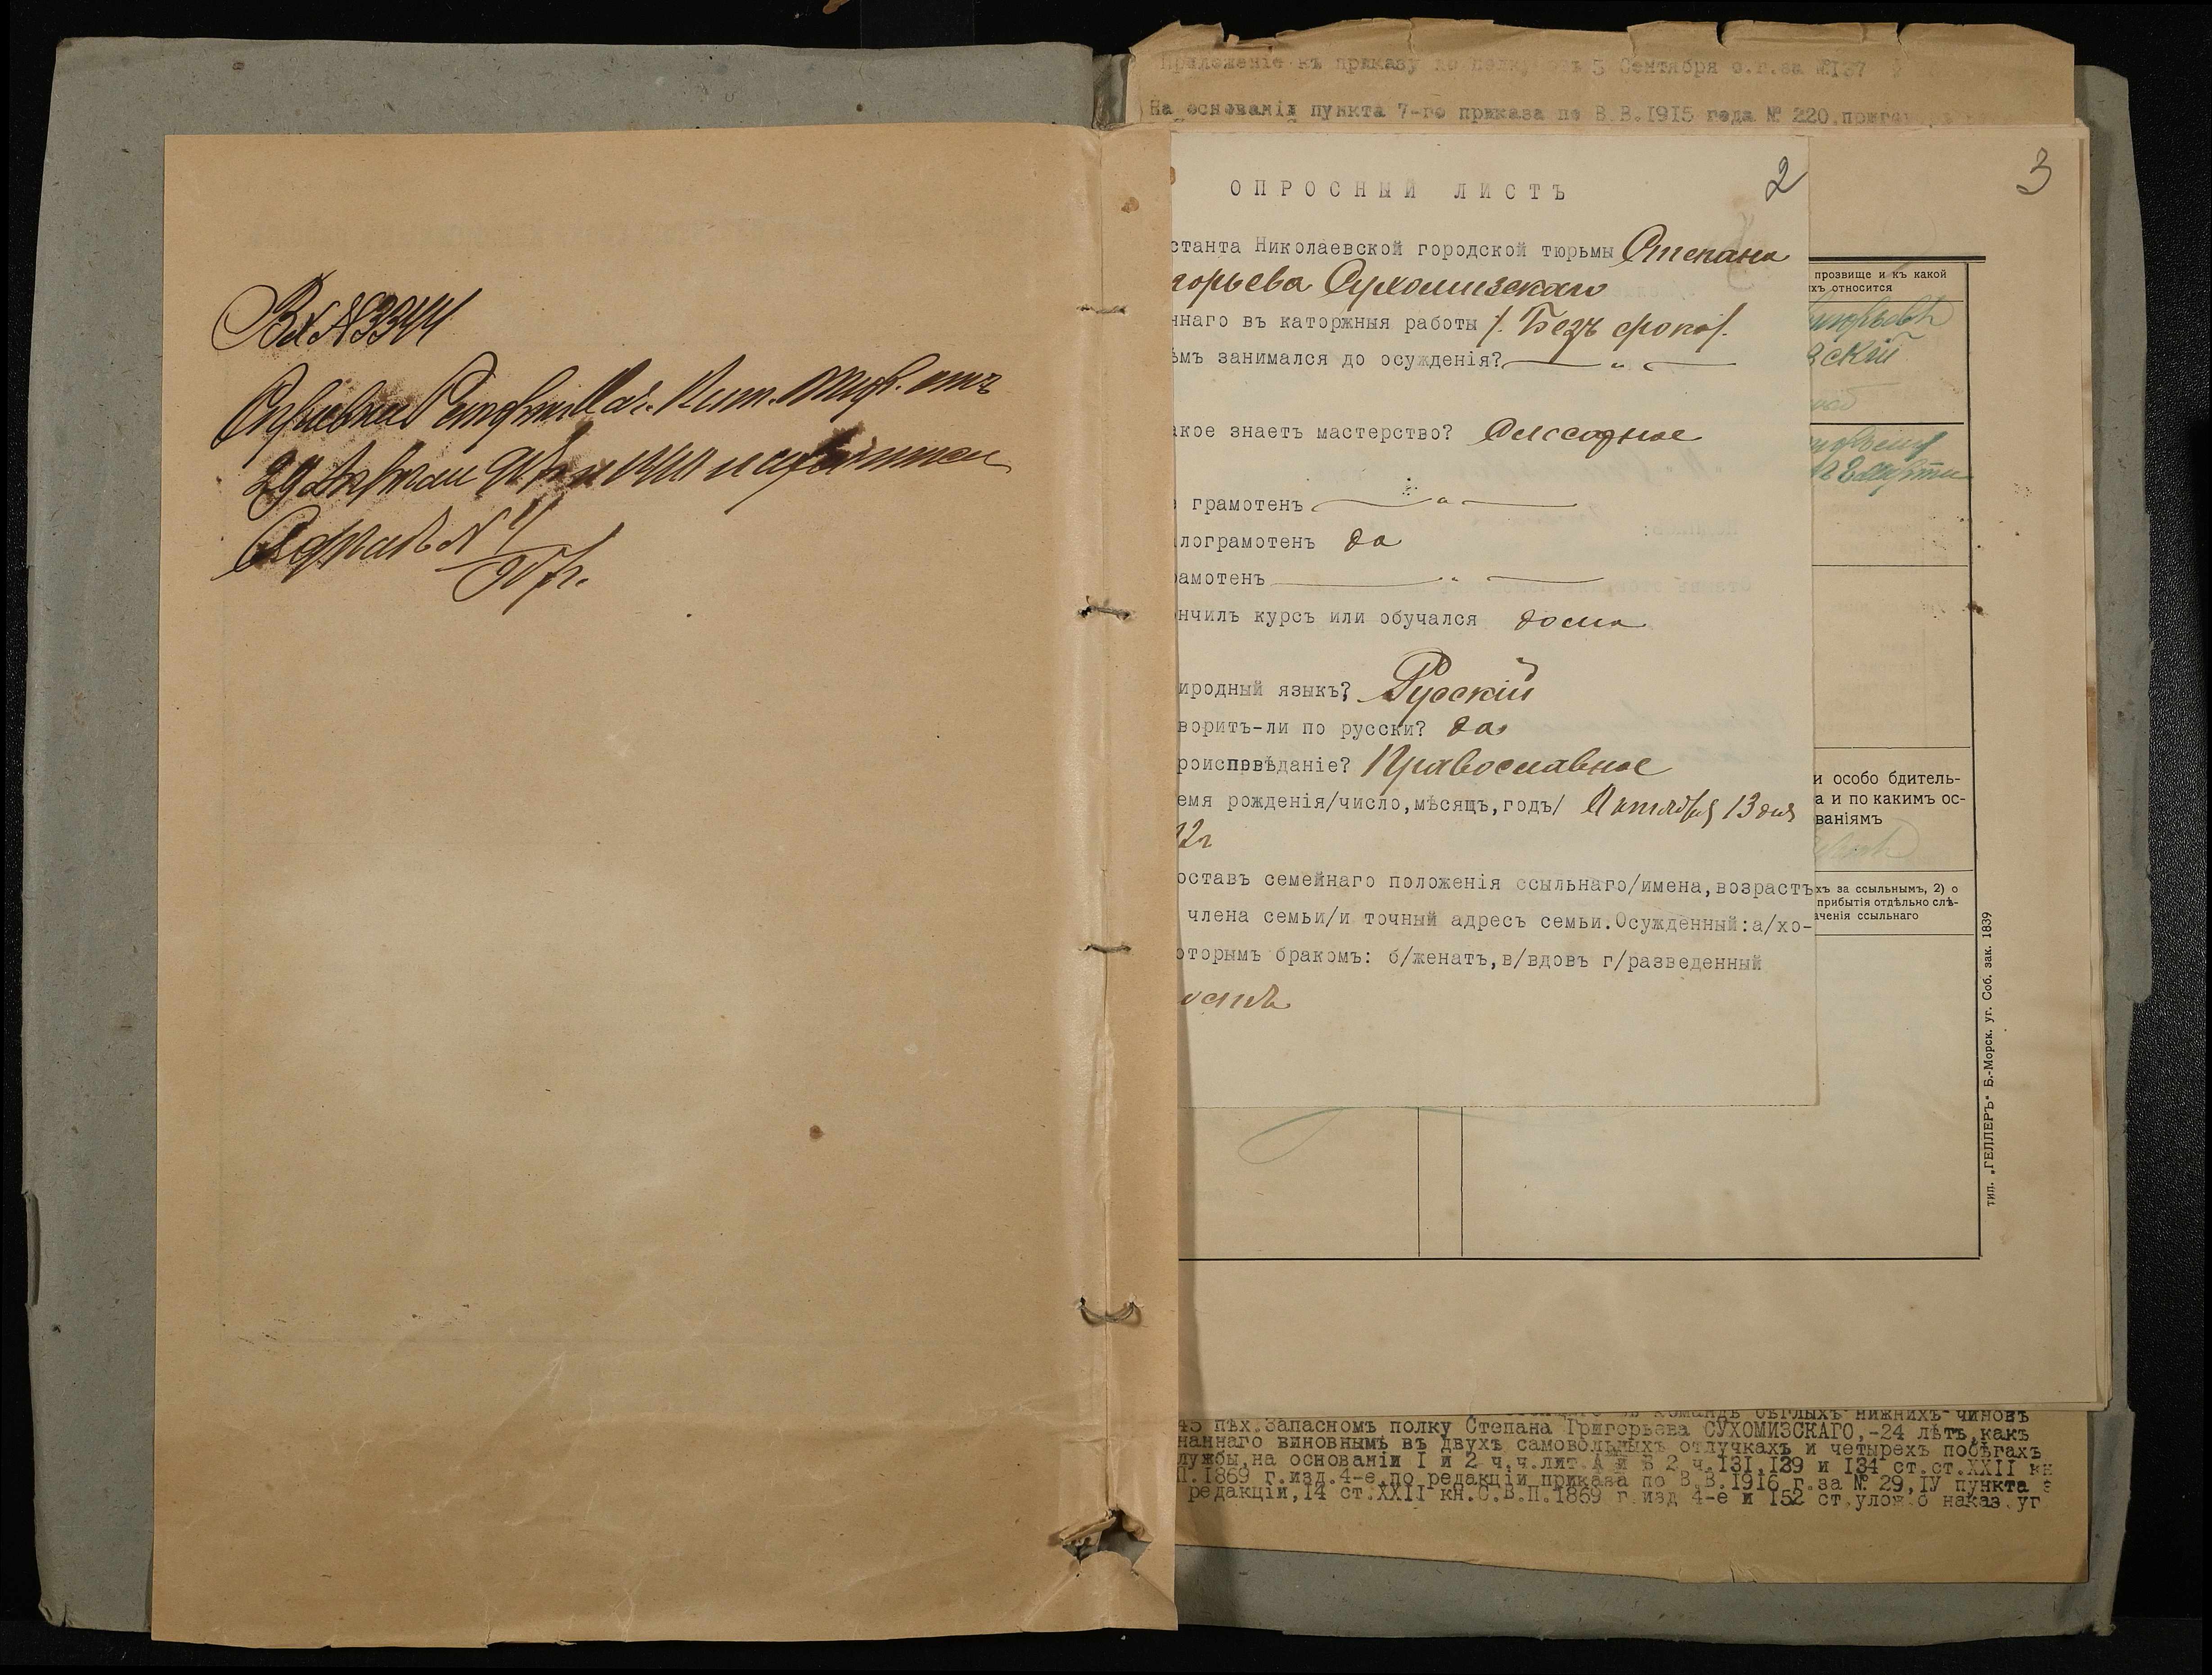 Вх №3344
29
№ 4
Приложеніе къ приказу по полку отъ 5 Сентября с.г.за №137
На основаніи пункта 7-го приказа по В.В.1915 года № 220,
3
2
ОПРОСНЫЙ ЛИСТЪ
станта Николаевской городской тюрьмы Степана
горьева Сухомизскаго
ннаго въ каторжныя работы /. Безъ срока/.
ѣмъ занимался до осужденія? — " —
акое знаетъ мастерство? Слесарное
грамотенъ — " —
лограмотенъ да
рамотенъ — " —
нчилъ курсъ или обучался дома
иродный языкъ? Русскій
воритъ-ли по русски? да
роисповѣданіе? Православное
емя рожденія/число,мѣсяцъ,годъ/ Октября 13 дня
92г
оставъ семейнаго положенія ссыльнаго/имена,возрастъ
члена семьи/и точный адресъ семьи.Осужденный:а/хо-
оторымъ бракомъ: б/женатъ,в/вдовъ г/разведенный
остъ
прозвище и къ какой
ихъ относится
вскій
и особо бдитель-
а и по какимъ ос-
ваніямъ
хъ за ссыльнымъ, 2) о
прибытія отдѣльно слѣ-
аченія ссыльнаго
тип. „ГЕЛЛЕРЪ" Б.-Морск. уг. Соб. зак. 1839
командѣ бѣглыхъ нижнихъ чиновъ
45 пѣх.Запасномъ полку Степана Григорьева СУХОМИЗСКАГО,-24 лѣтъ,какъ
наннаго виновнымъ въ двухъ самовольныхъ отлучкахъ и четырехъ побѣгахъ
лужбы,на основаніи I и 2 ч.ч.лит.А и Б 2 ч.131,129 и 134 ст.ст.XXII кн
П.1869 г.изд.4-е,по редакціи приказа по В.В.1916 г.за № 29,IУ пункта
редакціи,14 ст.XXII кн.С.В.П.1869 г.изд 4-е и 152 ст.улож.о наказ.уг